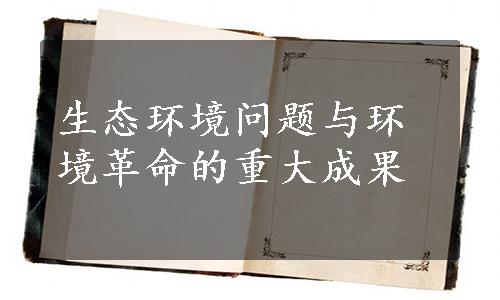 生态环境问题与环
境革命的重大成果